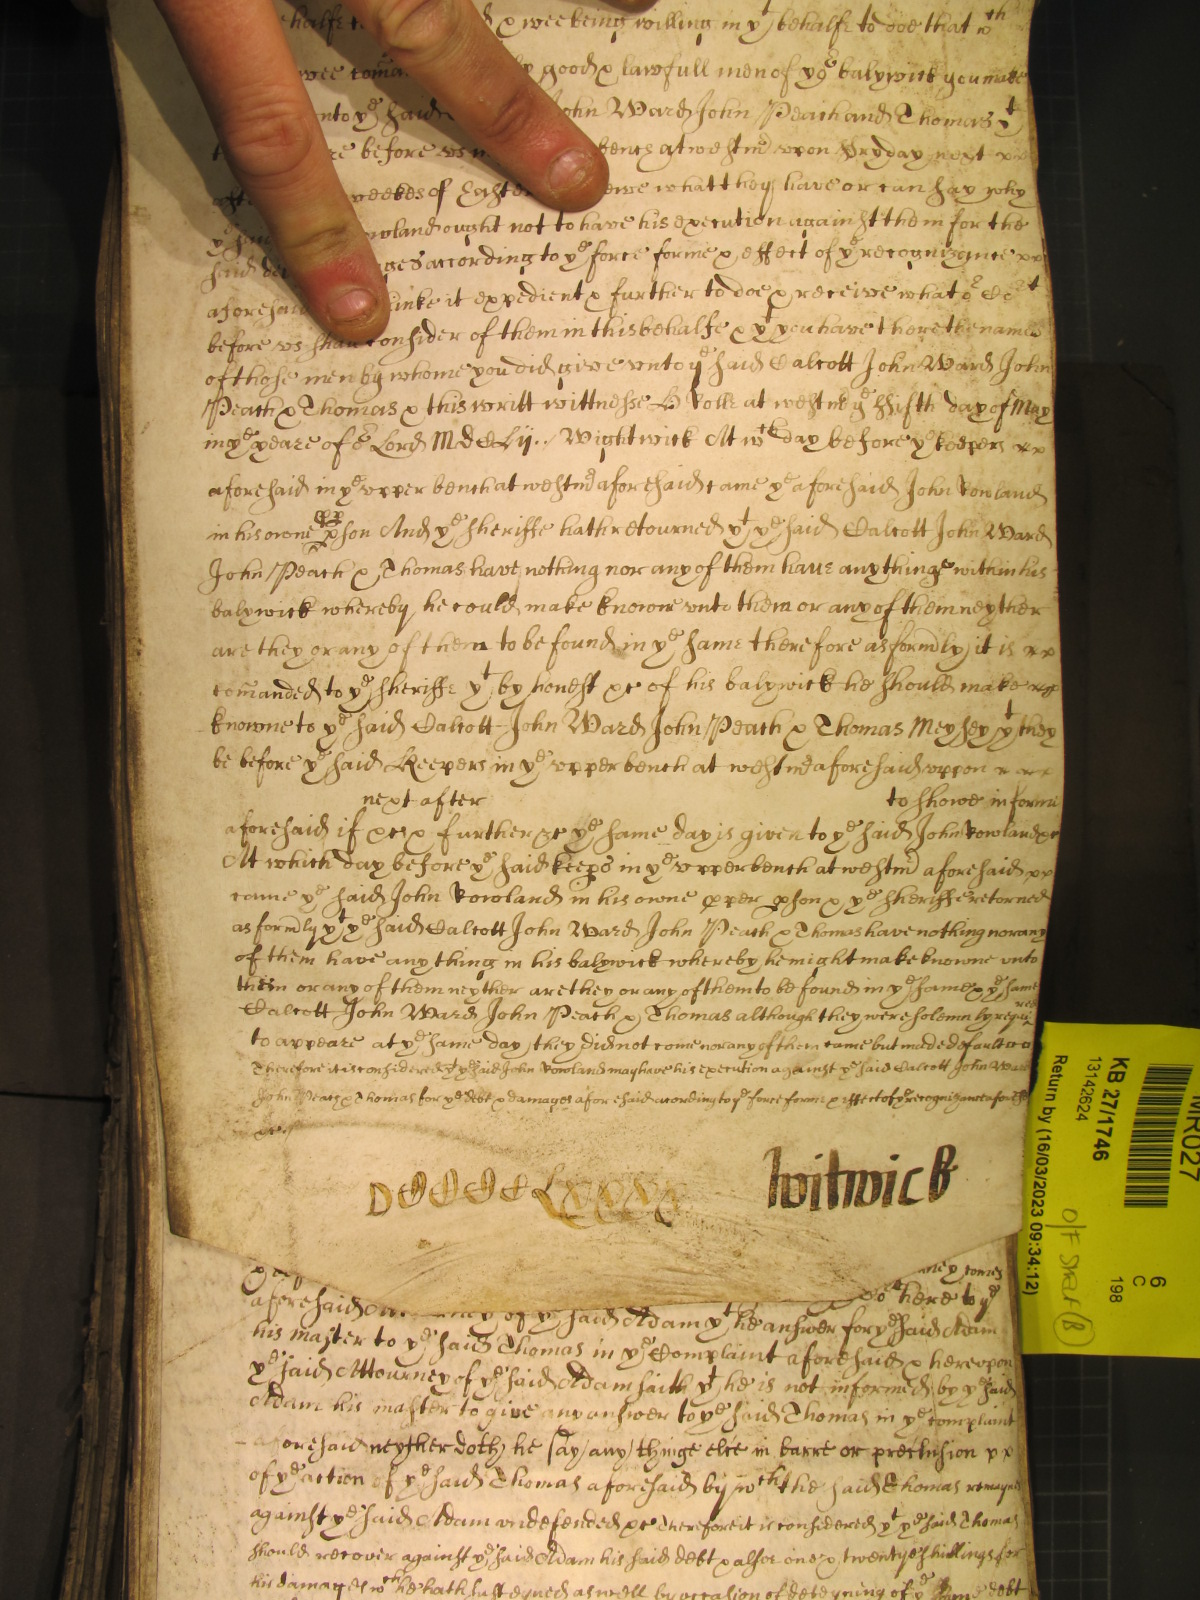 behalfe & wee being willing in yt behalfe to doe that wch
wee comand good & lawfull men of yor balywick you make
unto ye said John Ward John Peach and Thomas yt
before us bench at westmr upon Fryday next
weekes of Easter shewe what they have or can say why
ye said Rowland ought not to have his execution against them for the
said damages according to ye force forme & effect of ye recognizance
aforesaid thinke it expedient & further to doe & receive what or Cort
before us shall consider of them in this behalfe & yt you have there the names
of those men by whome you did give unto ye said Calcott John Ward John
Peach & Thomas & this writt wittnesse H Rolle at westmr ye ffifth day of May
in ye yeare of or Lord MDCLij.. Wightwick At wch day before ye keepers
aforesaid in ye upper bench at westmr aforesaid came ye aforesaid John Rowland
in his owne pson And ye sheriffe hath retourned yt ye said Calcott John Ward
John Peach & Thomas have nothing nor any of them have any thinge within his
balywick whereby he could make knowne unto them or any of them neyther
are they or any of them to be found in ye same therefore as formrly it is
comanded to ye sheriffe yt by honest &c of his balywick he should make
knowne to ye said Calcott John Ward John Peach & Thomas Meysey yt they
be before ye said Keepers in ye upper bench at westmr aforesaid uppon
next after to showe in forme
aforesaid if &c & further &c ye same day is given to ye said John Rowland &c
At which day before ye said keeps in ye upper bench at westmr aforesaid
came ye said John Rowland in his owne pper pson & ye sheriffe retorned
as formrly yt ye said Calcott John Ward John Peach & Thomas have nothing nor any
of them have any thing in his balywick whereby he might make knowne unto
them or any of them neyther are they or any of them to be found in ye same & ye same
Calcott John Ward John Peach & Thomas although they were solemnly required
to appeare at ye same day they did not come nor any of them came but made default
Therefore it is considered yt ye said John Rowland may have his execution against ye said Calcott John Ward
John Peach & Thomas for ye debt & damages aforesaid according to ye force forme & effect of ye recognizance aforesd
&c.
witwick
KB 27/1746
13142624
Return by (16/03/2023 09:34:12)
MR027
6
C
198
aforesaid of ye said Adam yt he answer for ye said Adam
his master to ye said Thomas in ye Complaint aforesaid & hereupon
ye said Attourney of ye said Adam saith yt he is not informed by ye said
Adam his master to give any answer to ye said Thomas in ye complaint
aforesaid neyther doth he say any thinge else in barre or preclusion
of ye action of ye said Thomas aforesaid by wch the said Thomas remaynes
against ye said Adam undefended &c Therefore it is considered yt ye said Thomas
should recover against ye said Adam his said debt & alsoe one & twenty shillings for
his damages wch he hath susteyned as well by occasion of deteyning of ye same debt